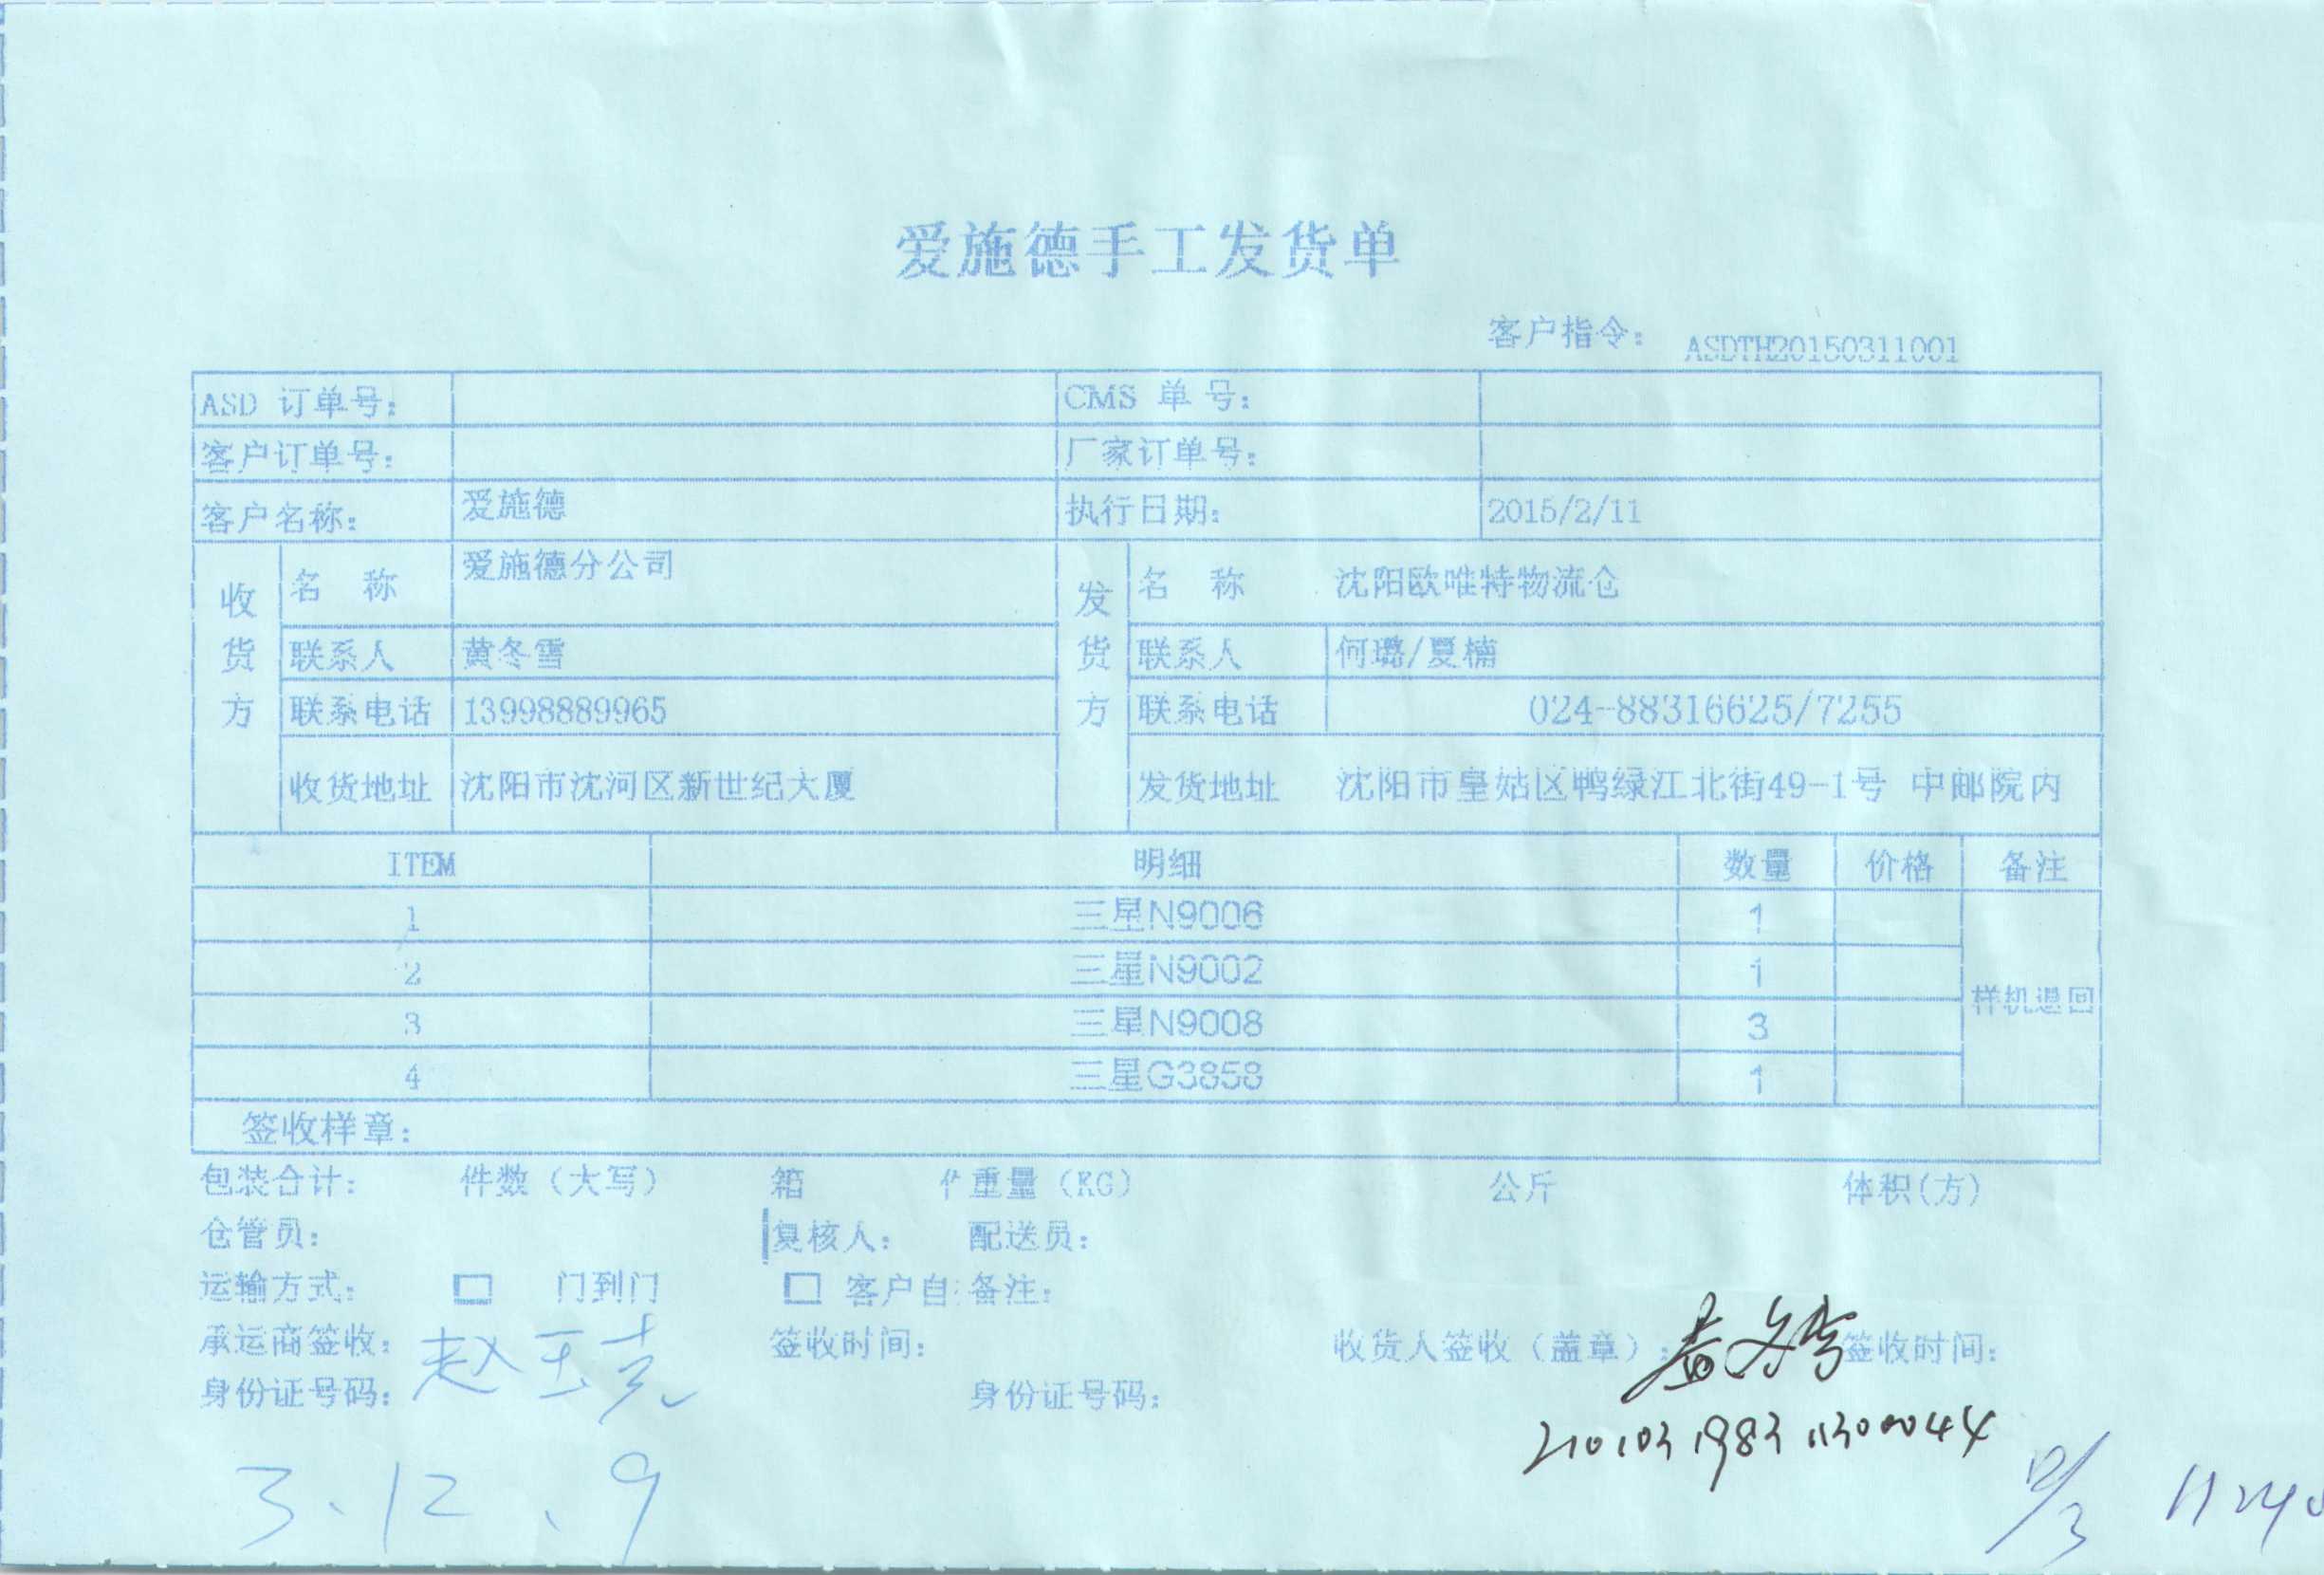 爱施德手工发货单
客户指令： ASDTH20150311001
ASD 订单号： CMS 单 号：
客户订单号： 厂家订单号：
客户名称： 爱施德 执行日期： 2015/2/11
收货方 名 称 爱施德分公司 发货方 名 称 沈阳欧唯特物流仓
联系人 黄冬雪 联系人 何璐/夏楠
联系电话 13998889965 联系电话 024-88316625/7255
收货地址 沈阳市沈河区新世纪大厦 发货地址 沈阳市皇姑区鸭绿江北街49-1号 中邮院内
ITEM 明细 数量 价格 备注
1 三星N9006 1
2 三星N9002 1
样机退回
3 三星N9008 3
4 三星G3858 1
签收样章：
包装合计： 件数（大写） 箱 重量（KG） 公斤 体积(方)
仓管员： 复核人： 配送员：
运输方式： □ 门到门 □ 客户自 备注：
承运商签收： 赵玉 签收时间： 收货人签收（盖章）： 签收时间：
身份证号码： 身份证号码：
210103198311300044
3.12.9
12/3